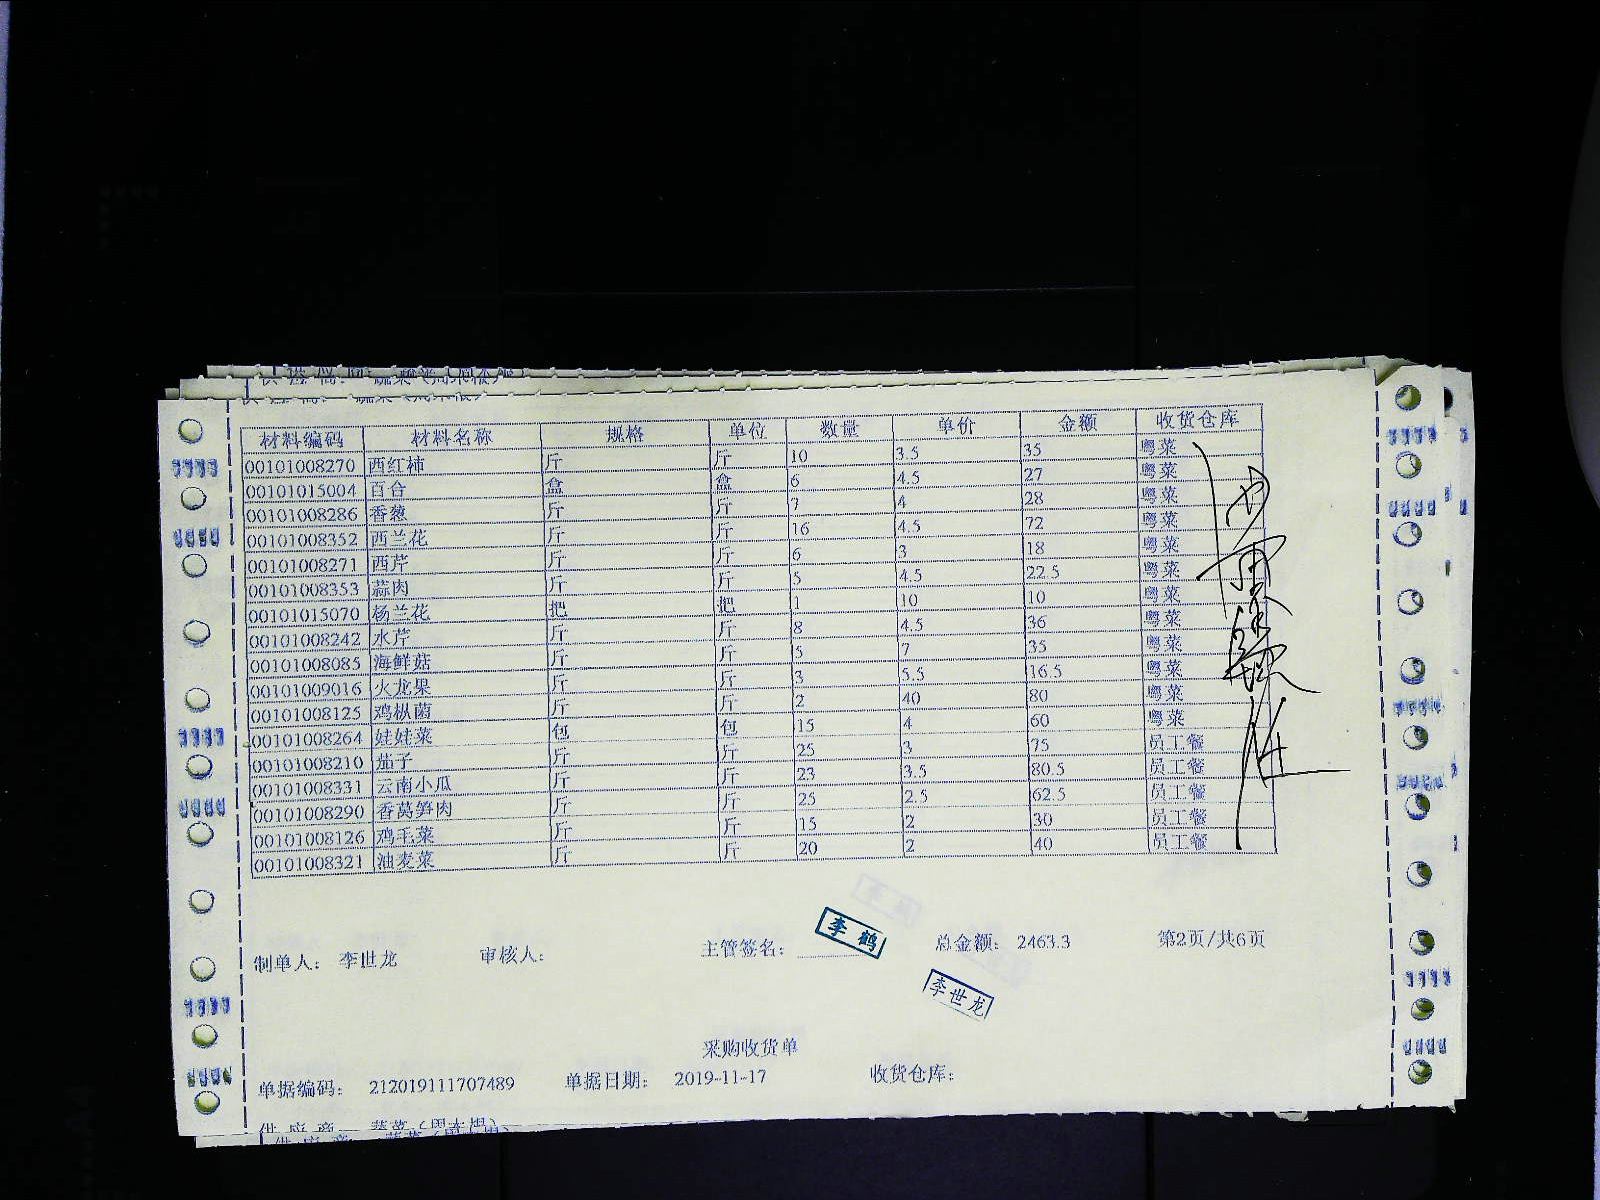 材料编码 材料名称 规格 单位 数量 单价 金额 收货仓库
00101008270 西红柿 斤 斤 10 3.5 35 粤菜
00101015004 百合 盒 盒 6 4.5 27 粤菜
00101008286 香葱 斤 斤 7 4 28 粤菜
00101008352 西兰花 斤 斤 16 4.5 72 粤菜
00101008271 西芹 斤 斤 6 3 18 粤菜
00101008353 蒜肉 斤 斤 5 4.5 22.5 粤菜
00101015070 杨兰花 把 把 1 10 10 粤菜
00101008242 水芹 斤 斤 8 4.5 36 粤菜
00101008085 海鲜菇 斤 斤 5 7 35 粤菜
00101009016 火龙果 斤 斤 3 5.5 16.5 粤菜
00101008125 鸡枞菌 斤 斤 2 40 80 粤菜
00101008264 娃娃菜 包 包 15 4 60 粤菜
00101008210 茄子 斤 斤 25 3 75 员工餐
00101008331 云南小瓜 斤 斤 23 3.5 80.5 员工餐
00101008290 香莴笋肉 斤 斤 25 2.5 62.5 员工餐
00101008126 鸡毛菜 斤 斤 15 2 30 员工餐
00101008321 油麦菜 斤 斤 20 2 40 员工餐
制单人: 李世龙 审核人: 主管签名: 李鹤 总金额: 2463.3 第2页/共6页
李世龙
采购收货单
单据编码: 212019111707489 单据日期: 2019-11-17 收货仓库: